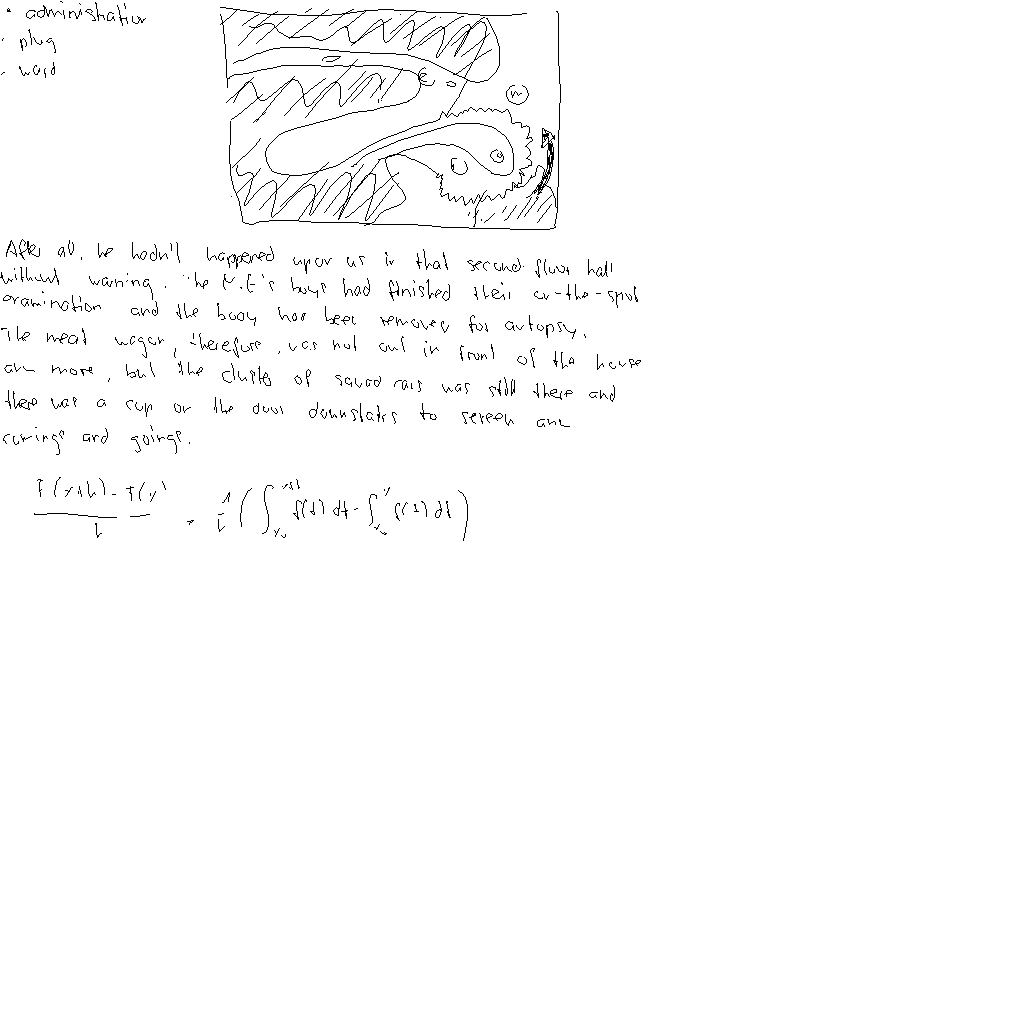 • administration
- plug
- ward
After all, he hadn't happened upon us in that second-floor hall
without warning. The M.E.'s boys had finished their on-the-spot
examination and the body has been removed for autopsy.
The meat wagon, therefore, was not out in front of the house
any more, but the cluster of squad cars was still there and
there was a cop on the door downstairs to screen any
comings and goings.
F(x+h) - F(x) / h = 1/h ( ∫_{x_0}^{x+h} f(t) dt - ∫_{x_0}^{x} f(t) dt )